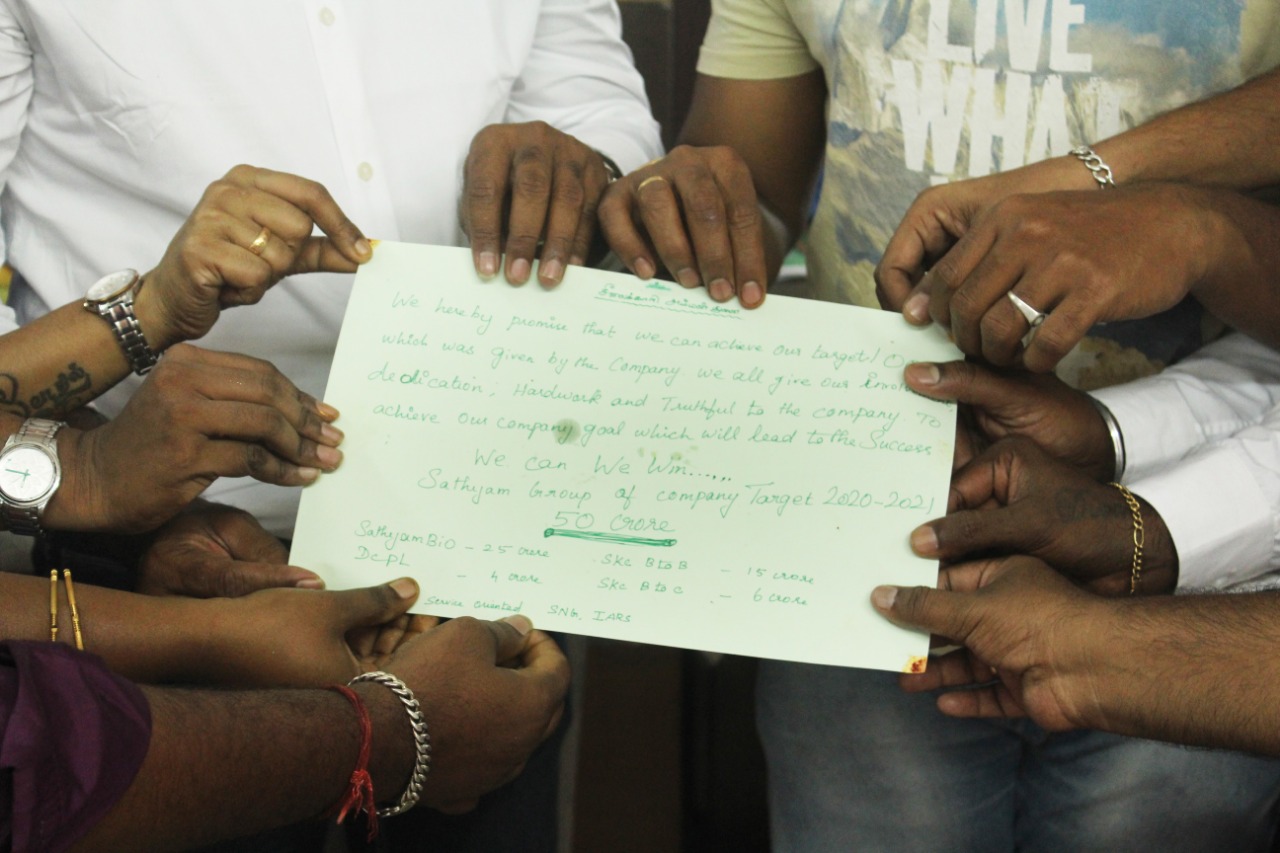 LIVE
WHAT
We hereby promise that we can achieve our target/
which was given by the Company we all give our
dedication; Hardwork and Truthful to the company. To
achieve our company goal which will lead to the Success
We can We Win.....
Sathyam Group of company Target 2020-2021
50 crore
Sathyam BiO - 25 crore SKC B to B - 15 crore
DCPL - 4 crore SKC B to C - 6 crore
Service oriented SNG, IARS